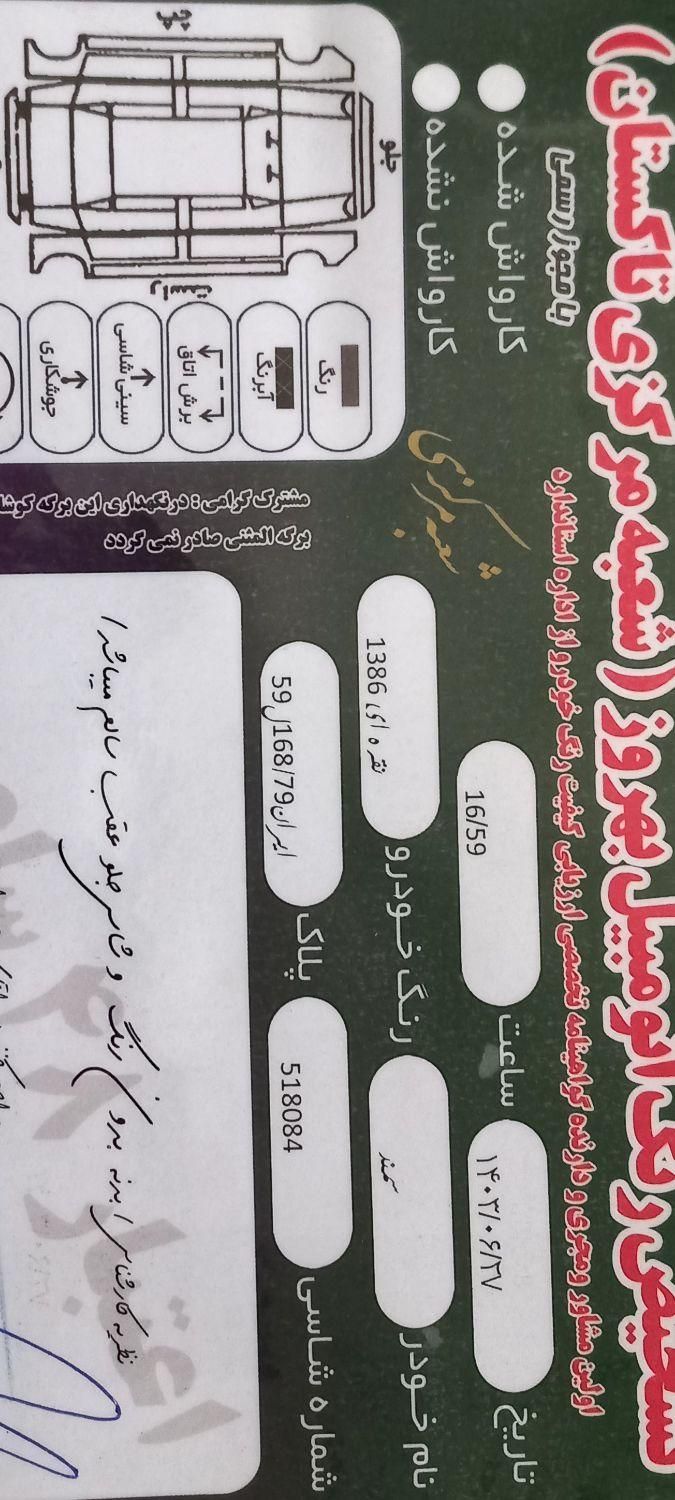 تشخیص رنگ اتومبیل بهروز (شعبه مرکزی تاکستان)
اولین مشاور و مجری و دارنده گواهینامه تخصصی ارزیابی کیفیت رنگ خودرو از اداره استاندارد
با مجوز رسمی
تاریخ ۱۴۰۳/۰۶/۲۷
ساعت 16/59
کارواش شده
نام خودرو سمند
رنگ خودرو نقره ای 1386
شعبه مرکزی
کارواش نشده
شماره شاسی 518084
پلاک ایران79/168ل59
مشترک گرامی : در نگهداری این برگه
برگه المثنی صادر نمی گردد
جلو
راست
رنگ
آبرنگ
برش اتاق
سینی شاسی
جوشکاری
نظریه کارشناس / بدنه بدون رنگ و شاسی جلو عقب سالم میباشد /